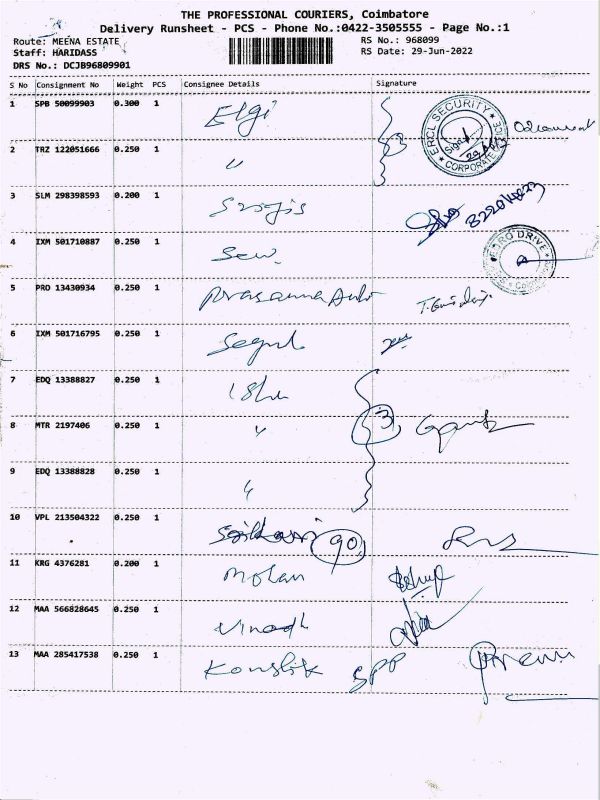 THE PROFESSIONAL COURIERS, Coimbatore
Delivery Runsheet - PCS - Phone No.:0422-3505555 - Page No.:1
Route: MEENA ESTATE RS No.: 968099
Staff: HARIDASS RS Date: 29-Jun-2022
DRS No.: DCJB96809901
S No Consignment No Weight PCS Consignee Details Signature
1 SPB 50099903 0.300 1 Elgi
ERCL SECURITY
CORPORATE
2 TRZ 122051666 0.250 1 "
3 SLM 298398593 0.200 1
4 IXM 501710887 0.250 1
DRIVE
5 PRO 13430934 0.250 1 Prasanna Auto
6 IXM 501716795 0.250 1
7 EDQ 13388827 0.250 1
8 MTR 2197406 0.250 1 " 3
9 EDQ 13388828 0.250 1 "
10 VPL 213504322 0.250 1 90
11 KRG 4376281 0.200 1 Mohan
12 MAA 566828645 0.250 1 Vinodh
13 MAA 285417538 0.250 1 Koushik SPP